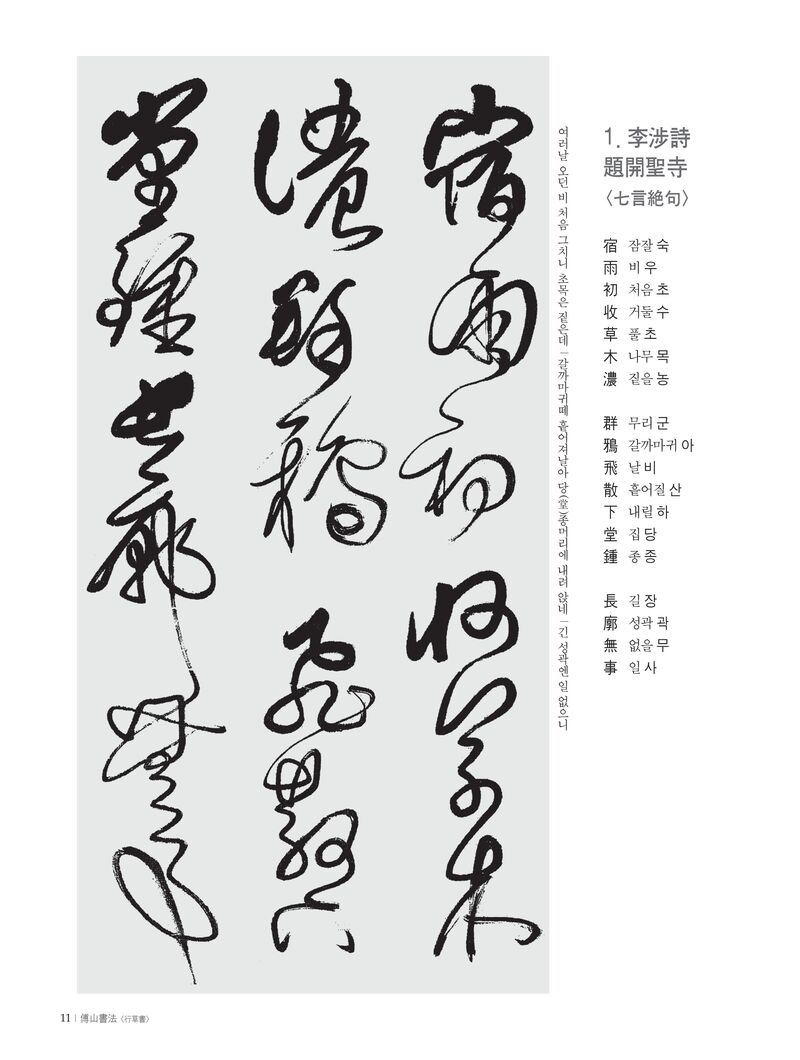 1. 李涉詩
題開聖寺
〈七言絶句〉
宿 잠잘 숙
雨 비 우
初 처음 초
收 거둘 수
草 풀 초
木 나무 목
濃 짙을 농
群 무리 군
鴉 갈까마귀 아
飛 날 비
散 흩어질 산
下 내릴 하
堂 집 당
鍾 종 종
長 길 장
廓 성곽 곽
無 없을 무
事 일 사
여러날 오던 비 처음 그치니 초목은 짙은데 | 갈까마귀떼 흩어져날아 당(堂)종머리에 내려 앉네 | 긴 성곽엔 일 없으니
宿雨初收草木
濃群鴉飛散下
堂鍾長廓無事
11 | 傅山書法〈行草書〉